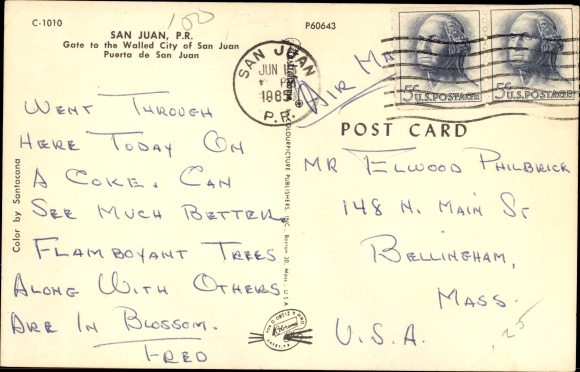 C-1010
100
P60643
SAN JUAN, P.R.
Gate to the Walled City of San Juan
Puerta de San Juan
SAN JUAN
JUN
PM
1965
P.R.
AIR MA
5¢ U.S. POSTAGE
5¢ U.S. POSTAGE
POST CARD
WENT THROUGH
HERE TODAY ON
A COKE. CAN
SEE MUCH BETTER.
FLAMBOYANT TREES
ALONG WITH OTHERS
ARE IN BLOSSOM.
FRED
Color by Santacana
COLOURPICTURE PUBLISHERS, INC., Boston 30, Mass., U.S.A.
MR ELWOOD PHILBRICK
148 N. MAIN ST
BELLINGHAM,
MASS.
U.S.A.
.25